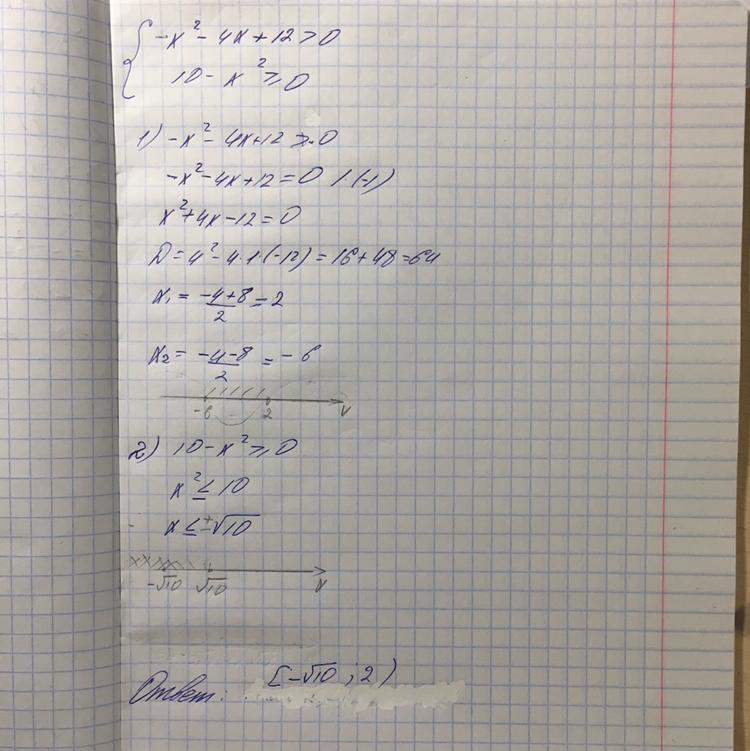 { -x² - 4x + 12 > 0
10 - x² ≥ 0
1) -x² - 4x + 12 > 0
-x² - 4x + 12 = 0 | · (-1)
x² + 4x - 12 = 0
D = 4² - 4 · 1 · (-12) = 16 + 48 = 64
x₁ = (-4+8)/2 = 2
x₂ = (-4-8)/2 = -6
-6 - 2 x
2) 10 - x² ≥ 0
x² ≤ 10
x ≤ ±√10
-√10 √10 x
Ответ: [-√10 ; 2)